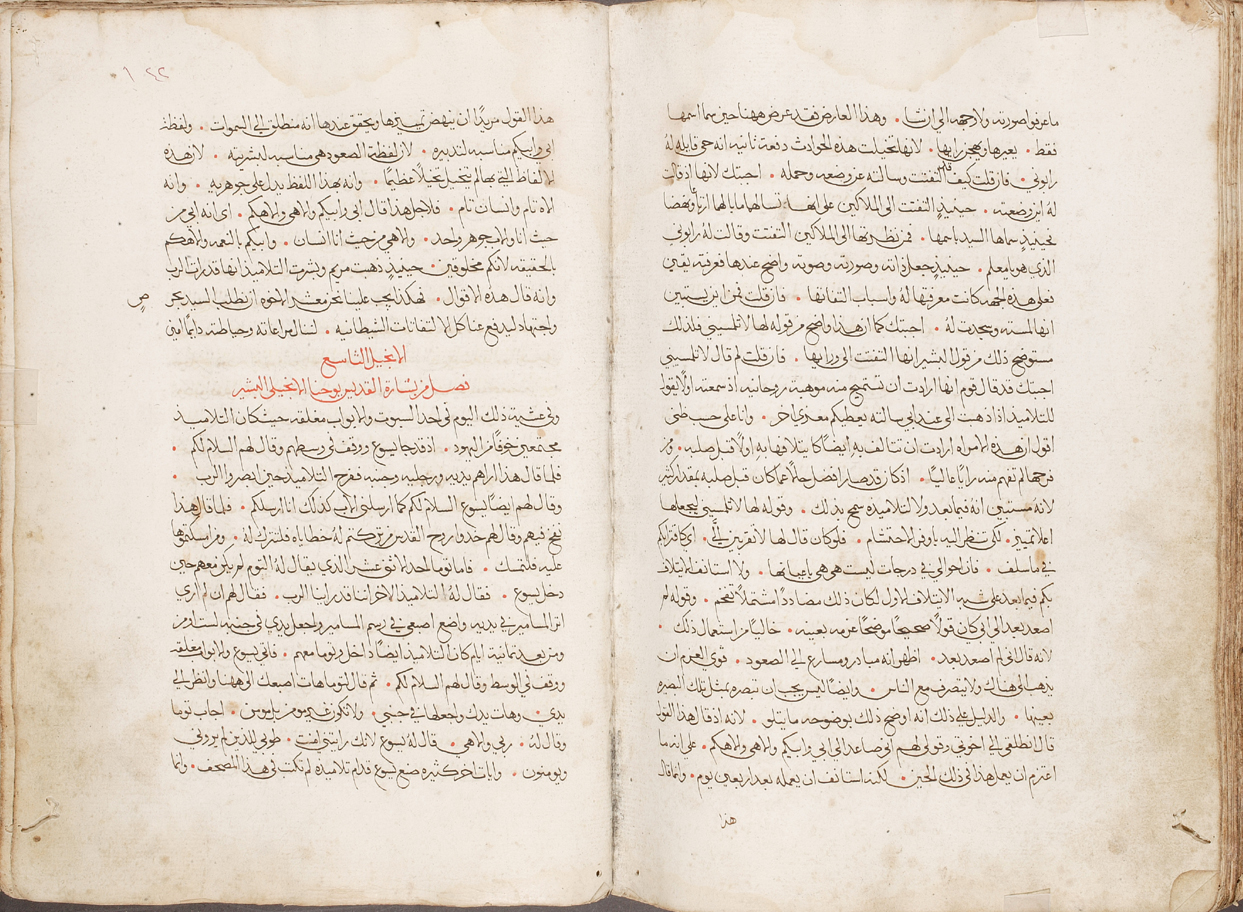 ما عرفوا صورته ولا وجهه الى ارتنا • وهذا العارض فقد عرض ههنا حين سما اسمها
فقط • يعبرها ويهجز رايها • لانها تخيلت هذه الحوادث دفعة ثانيه انه حي قابله له
رابوني • فان قلت كيف التفتت وسالته عن وضعه وحمله • اجبتك لانها اذ قالت
له اين وضعته • حينيذٍ التفتت الى الملاكين على انها تسالهما ما بالهما
فحينيذٍ سماها السيد باسمها • فمن نظرتها الى الملاكين التفتت وقالت له رابوني
الذي هو يا معلم • حينيذٍ جعل ذاته وصورته وصوته واضح عندها فعرفته يقين
فعلى هذه الجهه كانت معرفتها له واسباب التفاتها • فان قلت فمن اين يستبين
انها لمسته وسجدت له • اجبتك كما ان هذا واضح من قوله لها لا تلمسيني فلذلك
مستوضح ذلك من قول البشير انها التفتت الى ورايها • فان قلت لم قال لا تلمسيني
اجبتك قد قال قوم انها ارادت ان تستميح منه موهبة روحانيه اذ سمعته اولًا يقول
للتلاميذ اذا ذهبت الى عند ابي سالته يعطيكم معزي اخر • وانا على حسب ظني
اقول ان هذه الامراه ارادت ان تتالف به ايضًا كما يتلافها به اولًا قبل صلبه • ومن
فرحها لم تفهم منه رايًا عاليًا • اذ كان قد صار افضل حالًا عما كان قبل صلبه بمقدار كثير
لانه مستبين انه فيما بعد ولا لتلاميذه سمح بذلك • وقوله لها لا تلمسيني ليجعلها
اعلا تمييز • لكي تنظر اليه باوفر الاحتشام • فلو كان قال لها لا تقربين الي • اي كاقترابكم
في ما سلف • فان احوالي في درجات ليست هي هي باعيانها • ولا استانف الايتلاف
بكم فيما بعد على شبه الايتلاف الاول لكان ذلك مضاددًا مشتملًا تتجم • وقوله لم
اصعد بعد الى ابي كان قولًا صحيحًا موضحًا عزمه بعينه • خاليًا من استعمال ذلك •
لانه قال اني لم اصعد بعد • اظهر انه مبادر ومسارع الى الصعود • فوي العزم ان
يذهب الى هناك ولا يتصرف مع الناس • وايضًا ليس يجب ان تبصره بمثل تلك البصره
بعينها • والدليل على ذلك انه اوضح ذلك بوضوحه ما يتلو • لانه اذ قال هذا القول
قال انطلقي الى اخوتي وقولي لهم اني صاعد الى ابي وابيكم والاهي والاهكم • على انه ما
اعتزم ان يعمل هذا في ذلك الحين • لكنه استانف ان يعمله بعد اربعين يوم • وانما قال
هذا
هذا القول مريدًا ان ينهض تمييزها ويحقق عندها انه منطلق الى السموات • ولفظة
ابي وابيكم مناسبه لتدبيره • لان لفظة الصعود هي مناسبه لبشريته • لان هذه
الالفاظ التي بها لم يتخيل تخيلًا عظيمًا • وانه بهذا اللفظ يدل على جوهريه • وانه
الاه تام وانسان تام • فلاجل هذا قال ابي وابيكم والاهي والاهكم • اي انه ابي من
حيث انا والاب جوهر واحد • والاهي من حيث انا انسان • وابيكم بالنعمه والاهكم
بالحقيقه لانكم مخلوقين • حينيذٍ ذهبت مريم وبشرت التلاميذ انها قد رات الرب
وانه قال هذه الاقوال • فهكذا يجب علينا نحن معشر الاخوه ان نطلب السيد بحرص
واجتهاد ليدفع عنا كل الالتفاتات الشيطانيه • لننال مراعاته وحياطته دايمًا امين
الانجيل التاسع
فصل من بشارة القديس يوحنا الانجيلي البشير
وفي عشية ذلك اليوم في احد السبوت والابواب مغلقه حيث كان التلاميذ
مجتمعين خوفًا من اليهود • اذ قد جا يسوع ووقف في وسطهم وقال لهم السلام لكم •
فلما قال هذا اراهم يديه ورجليه وجنبه ففرح التلاميذ حين ابصروا الرب •
وقال لهم ايضًا يسوع السلام لكم كما ارسلني الاب كذلك انا ارسلكم • فلما قال هذا
نفخ فيهم وقال لهم خذوا روح القدس من تركتم له خطاياه فلتترك له • ومن امسكتموها
عليه فلتمسك • فاما توما احد الاثني عشر الذي يقال له التوم لم يكن معهم حين
دخل يسوع • فقال له التلاميذ الاخر اننا قد راينا الرب • فقال لهم ان لم اري
اثر المسامير في يديه واضع اصبعي في رسم المسامير واجعل يدي في جنبه لست اومن
ومن بعد ثمانية ايام كان التلاميذ ايضًا داخل وتوما معهم • فاتى يسوع والابواب مغلقه
ووقف في الوسط وقال لهم السلام لكم • ثم قال لتوما هات اصبعك الى ههنا وانظر الى
يدي • وهات يدك واجعلها في جنبي • ولا تكون غير مومن بل مومن • اجاب توما
وقال له • ربي والاهي • قال له يسوع لانك رايتني امنت • طوبى للذين لم يروني
ويومنون • وايات اخر كثيره صنع يسوع قدام تلاميذه لم تكتب في هذا المصحف • وانما